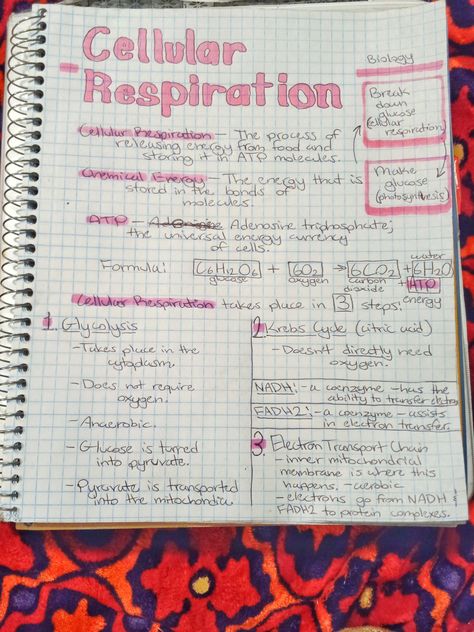 Cellular
Respiration
Biology
Break
down
glucose
(cellular
respiration)
Make
glucose
(photosynthesis)
Cellular Respiration - The process of
releasing energy from food and
storing it in ATP molecules.
Chemical Energy - The energy that is
stored in the bonds of
molecules.
ATP - Adenosine triphosphate;
the universal energy currency
of cells.
Formula: C6H12O6 + 6O2 → 6CO2 + 6H2O
glucose oxygen carbon dioxide water
+ATP
energy
Cellular Respiration takes place in 3 steps:
1. Glycolysis
-Takes place in the
cytoplasm.
-Does not require
oxygen.
-Anaerobic.
-Glucose is turned
into pyruvate.
-Pyruvate is transported
into the mitochondia
2. Krebs Cycle (citric acid)
-Doesn't directly need
oxygen.
NADH: -a coenzyme -has the
ability to transfer electrons
FADH2: -a coenzyme -assists
in electron transfer.
3. Electron Transport Chain
-inner mitochondrial
membrane is where this
happens. -aerobic
-electrons go from NADH &
FADH2 to protein complexes.